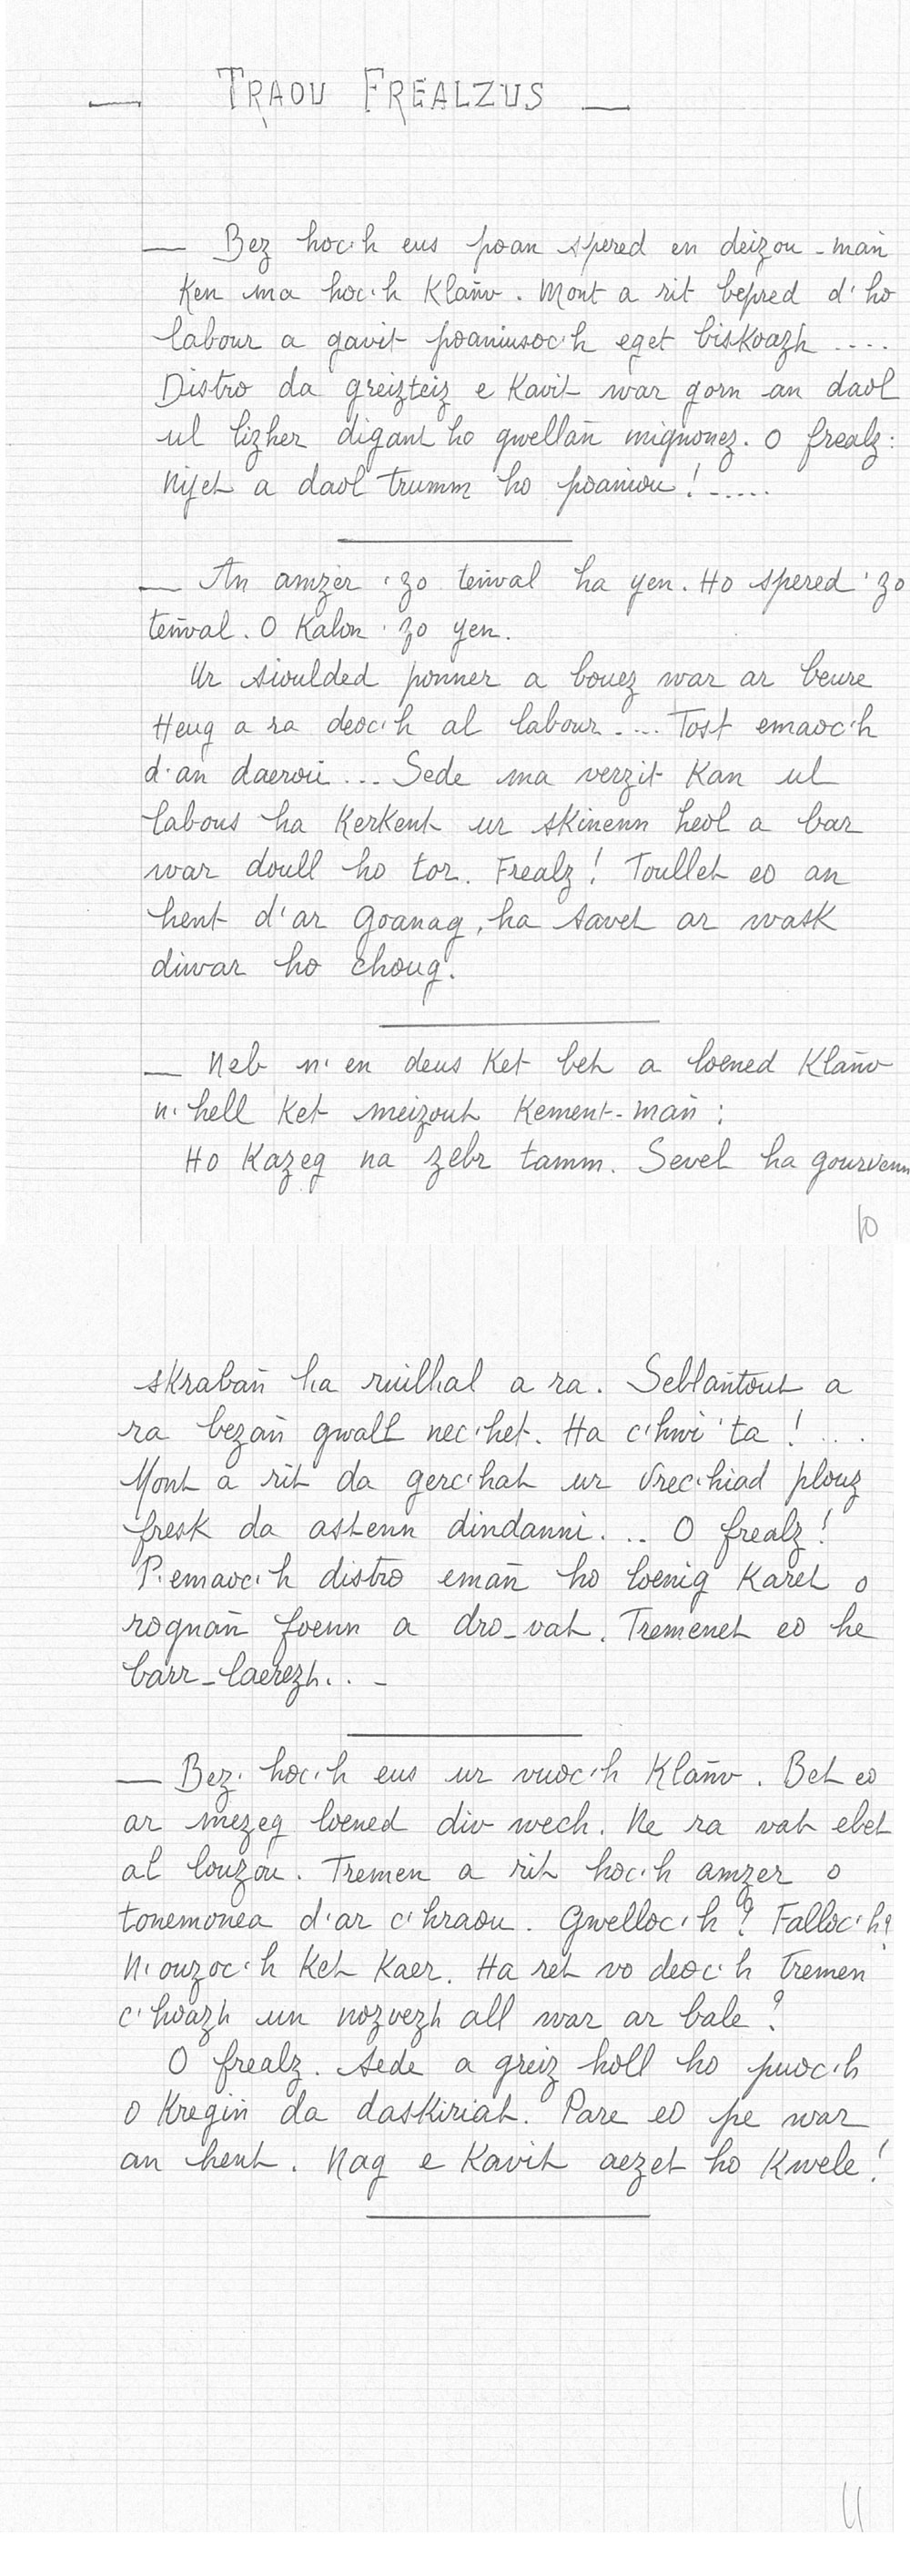 — TRAOU FREALZUS —
— Bez hoc'h eus poan spered en deizou-mañ
ken ma hoc'h klañv. Mont a rit bepred d'ho
labour a gavit poaniusoc'h eget biskoazh ....
Distro da greizteiz e kavit war gorn an daol
ul lizher digant ho gwellañ mignonez. O frealz:
Nijet a daol trumm ho poaniou ! .....
— An amzer 'zo teñval ha yen. Ho spered 'zo
teñval. O kalon 'zo yen.
Ur sioulded ponner a bouez war ar beure
Heug a ra deoc'h al labour .... Tost emaoc'h
d'an daeroù ... Sede ma verzit kan ul
labous ha kerkent ur skinenn heol a bar
war doull ho tor. Frealz ! Toullet eo an
hent d'ar Goanag, ha savet ar wask
diwar ho choug.
— Neb n'en deus ket bet a loened klañv
n'hell ket meizout kement-mañ :
Ho kazeg na zebr tamm. Sevel ha gourvenn
10
skrabañ ha ruilhal a ra. Seblañtout a
ra bezañ gwall nec'het. Ha c'hwi 'ta ! ...
Mont a rit da gerc'hat ur vrec'hiad plouz
fresk da astenn dindanni ... O frealz !
P'emaoc'h distro emañ ho loenig karet o
rognañ foenn a dro-vat. Tremenet eo he
barr-laerezh. . -
— Bez' hoc'h eus ur vuoc'h klañv. Bet eo
ar mezeg loened div wech. Ne ra vat ebet
al louzou. Tremen a rit hoc'h amzer o
tonemonea d'ar c'hraou. Gwelloc'h ? Falloc'h ?
N'ouzoc'h ket kaer. Ha ret vo deoc'h tremen
c'hoazh un nozvezh all war ar bale ?
O frealz. Sede a greiz holl ho puoc'h
o kregiñ da daskiriat. Pare eo pe war
an hent. Nag e kavit aezet ho kwele !
11